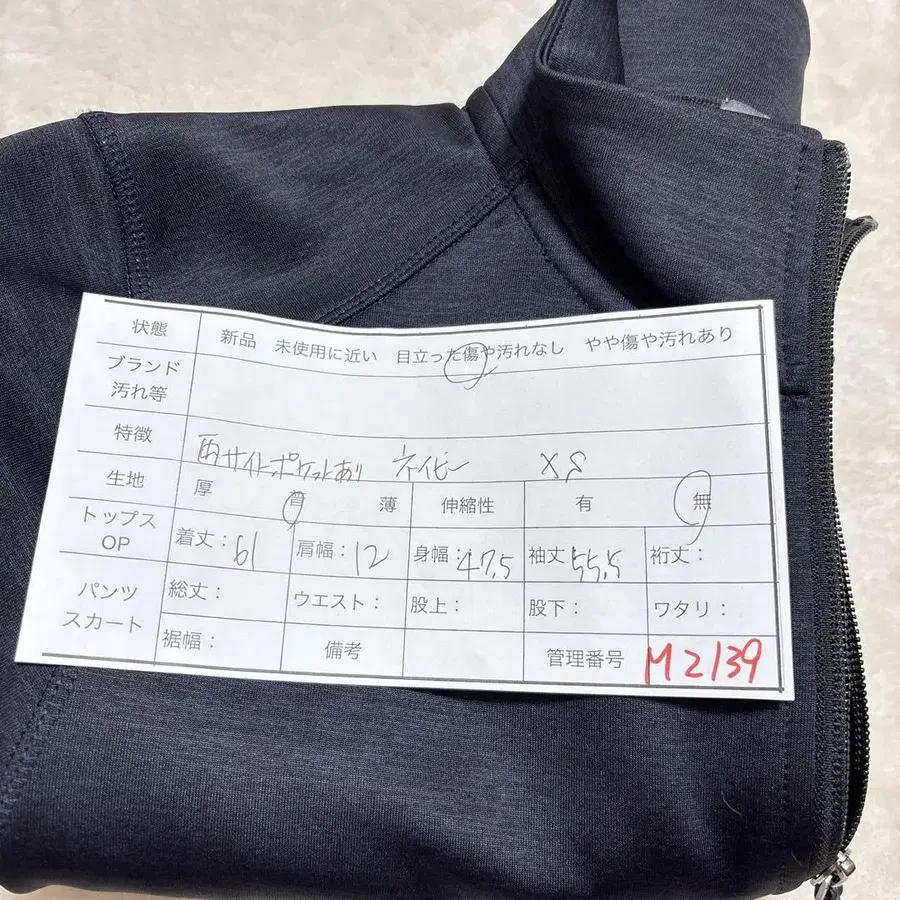 状態 新品 未使用に近い 目立った傷や汚れなし やや傷や汚れあり
ブランド
汚れ等
特徴 両サイドポケットあり ネイビー XS
生地 厚 普 薄 伸縮性 有 無
トップス
OP 着丈：61 肩幅：12 身幅：47.5 袖丈 55.5 裄丈：
パンツ
スカート 総丈： ウエスト： 股上： 股下： ワタリ：
裾幅： 備考 管理番号 M2139